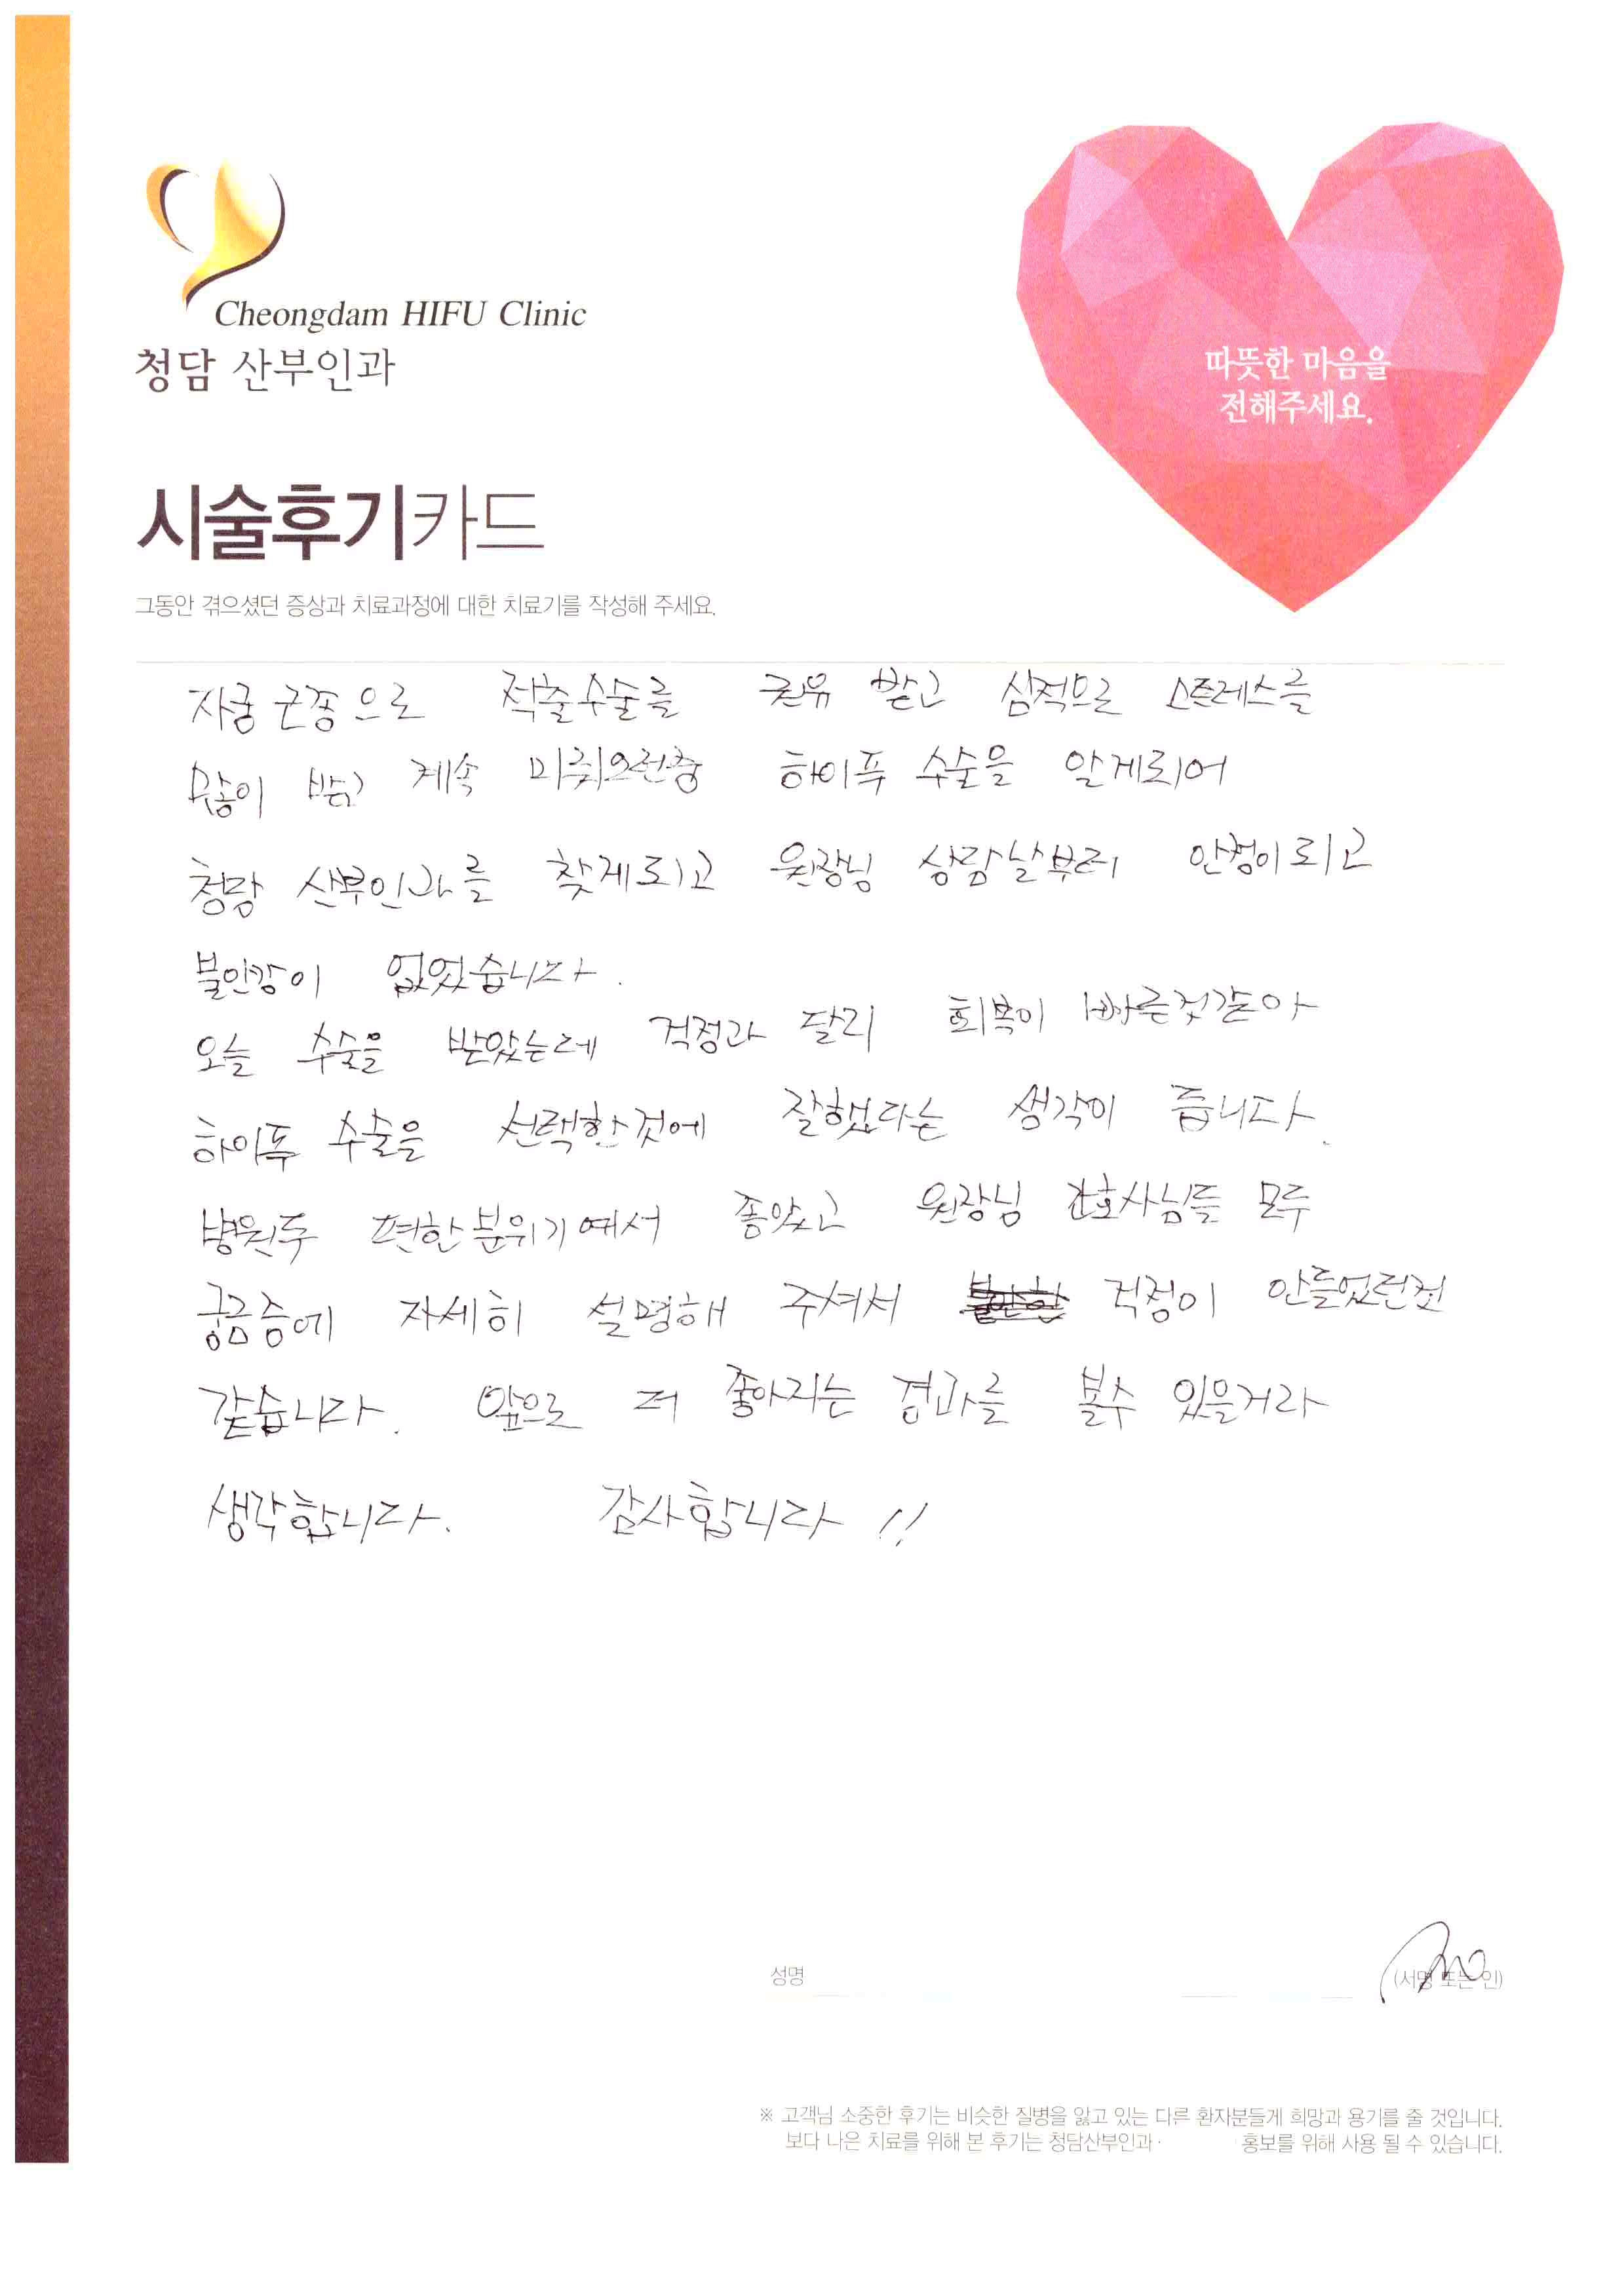 Cheongdam HIFU Clinic
청담 산부인과
따뜻한 마음을
전해주세요.
시술후기카드
그동안 겪으셨던 증상과 치료과정에 대한 치료기를 작성해 주세요.
자궁 근종으로 적출수술를 권유 받고 심적으로 스트레스를
많이 받고 계속 미뤄오던중 하이푸 수술을 알게되어
청담 산부인과를 찾게되고 원장님 상담날부터 안정이 되고
불안감이 없었습니다.
오늘 수술을 받았는데 걱정과 달리 회복이 빠른것같아
하이푸 수술을 선택한것에 잘했다는 생각이 듭니다.
병원두 편한분위기여서 좋았고 원장님 간호사님들 모두
궁금증에 자세히 설명해 주셔서 걱정이 안들었던것
같습니다. 앞으로 더 좋아지는 경과를 볼수 있을거라
생각합니다. 감사합니다 !!
성명 (서명 또는 인)
※ 고객님 소중한 후기는 비슷한 질병을 앓고 있는 다른 환자분들게 희망과 용기를 줄 것입니다.
보다 나은 치료를 위해 본 후기는 청담산부인과· 홍보를 위해 사용 될 수 있습니다.